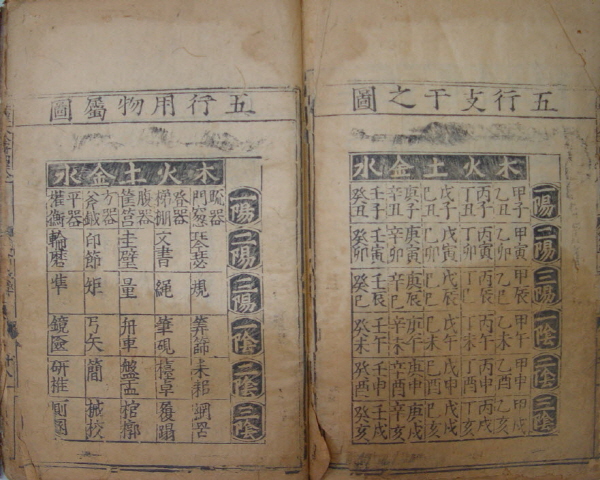 五行支干之圖
木火土金水
一陽 甲子乙丑 丙子丁丑 戊子己丑 庚子辛丑 壬子癸丑
二陽 甲寅乙卯 丙寅丁卯 戊寅己卯 庚寅辛卯 壬寅癸卯
三陽 甲辰乙巳 丙辰丁巳 戊辰己巳 庚辰辛巳 壬辰癸巳
一陰 甲午乙未 丙午丁未 戊午己未 庚午辛未 壬午癸未
二陰 甲申乙酉 丙申丁酉 戊申己酉 庚申辛酉 壬申癸酉
三陰 甲戌乙亥 丙戌丁亥 戊戌己亥 庚戌辛亥 壬戌癸亥
五行用物屬圖
木火土金水
一陽 疏器門窓 登器梯棚 腹器筐筥 方器斧鉞 平器權衡
二陽 琴瑟 文書 圭璧 印節 輪磨
三陽 規 繩 量 矩 準
一陰 筭篩 筆硯 舟車 弓矢 鏡
二陰 耒耜 檯卓 盤盂 簡 研推
三陰 網罟 履蹋 棺槨 械